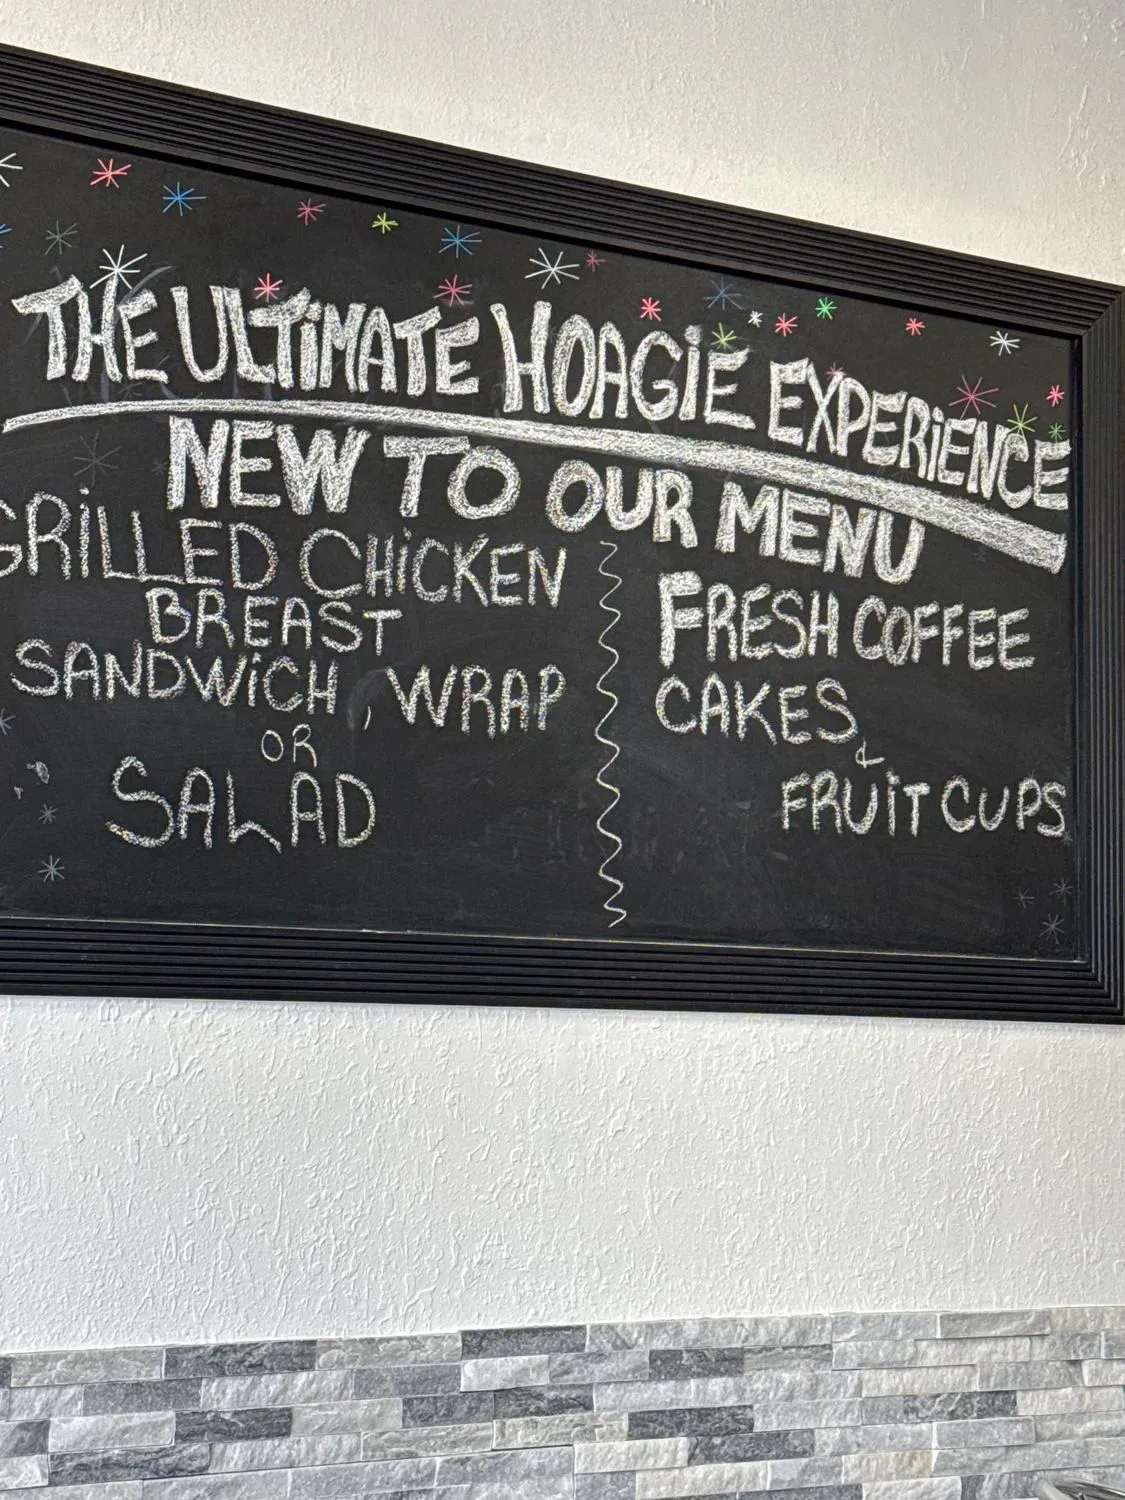 THE ULTiMATE HOAGiE EXPERiENCE
NEW TO OUR MENU
GRiLLED CHiCKEN
BREAST
SANDWiCH, WRAP
OR
SALAD
FRESH COFFEE
CAKES
&
FRUiT CUPS